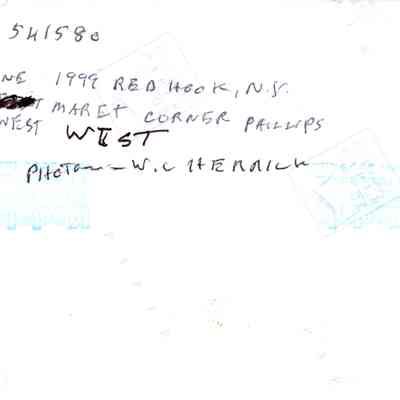 541580
NE 1999 RED HOOK, N.Y.
MARET CORNER PHILLIPS
WEST WEST
PHOTO - W.C HERRICK